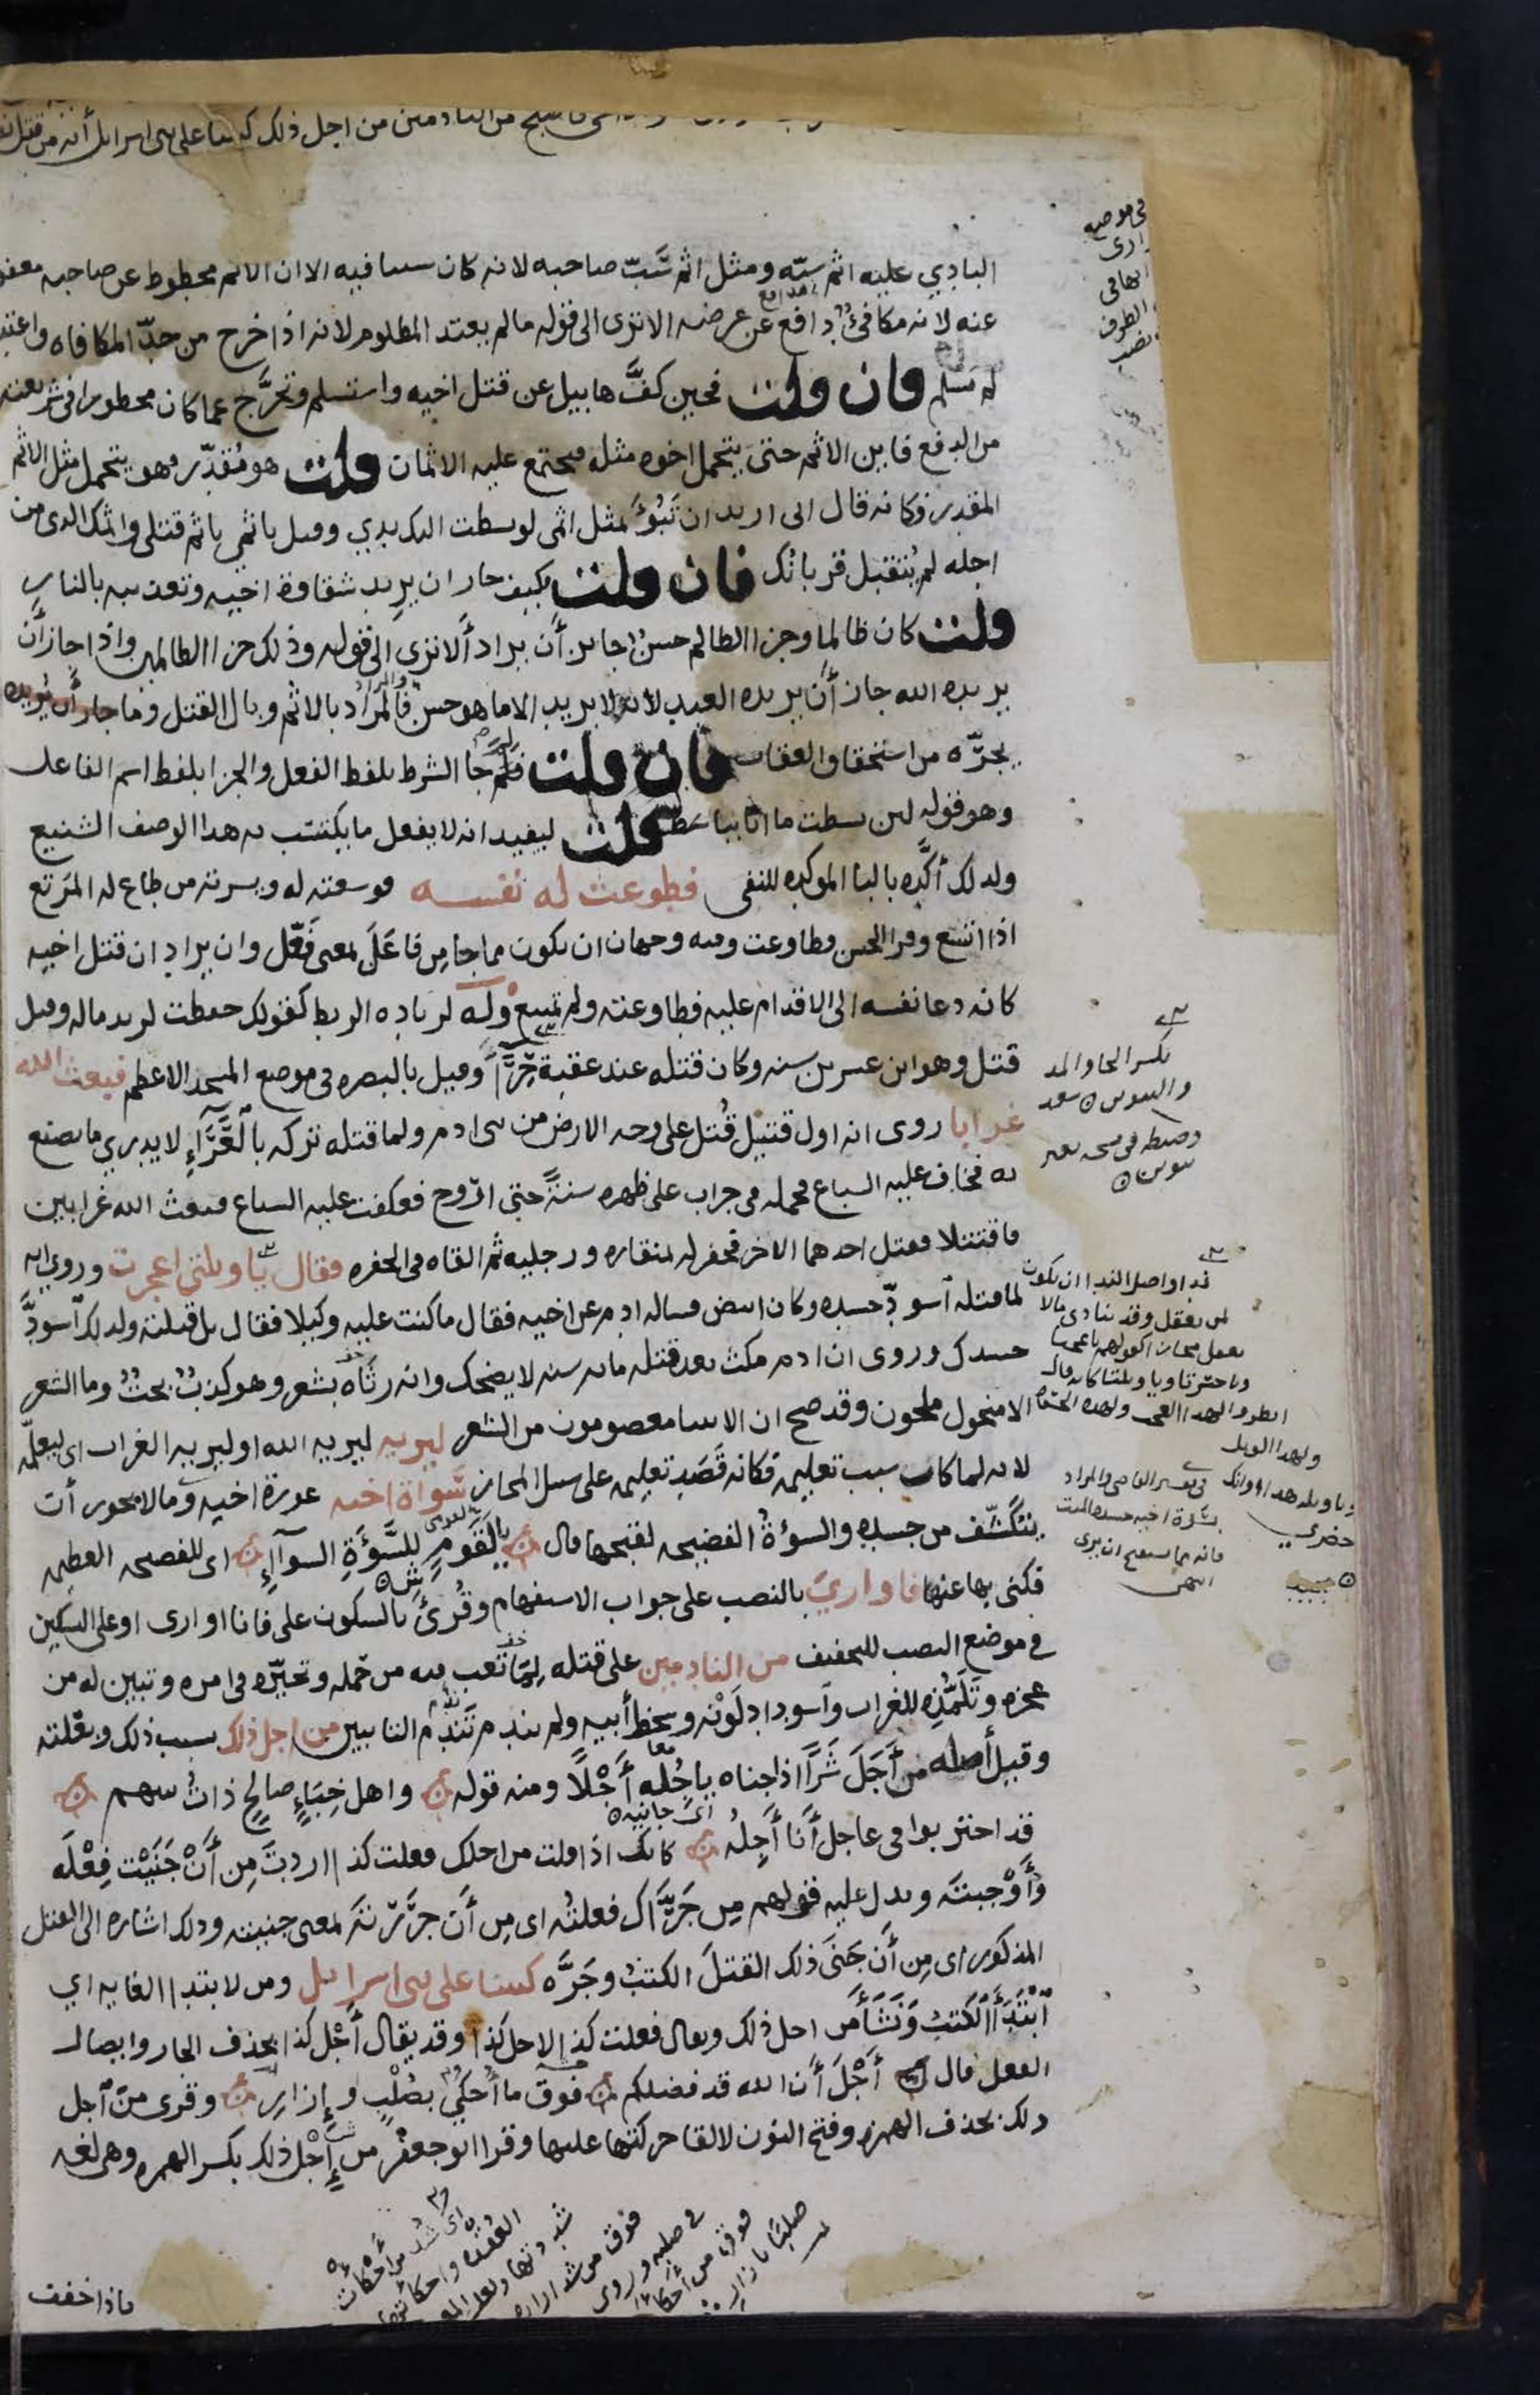 فاصبح من النادمين من اجل ذلك كتبنا على بنى اسرايل أنه من قتل
البادي عليه اثم سبّه ومثل اثم سَبّ صاحبه لانه كان سببا فيه الا ان الاثم محطوط عن صاحبه معفو
عنه لانه مكافئٌ دافع عن عرضه الا ترى الى قوله ما لم يعتد المظلوم لانه اذا خرج من حدّ المكافاه واعتدى
لم يسلم فان قلت فحين كفَّ هابيل عن قتل اخيه واستسلم وتحرَّج عما كان محظورا في شريعته
من الدفع فاين الاثم حتى يتحمل اخوه مثله فيجتمع عليه الاثمان قلت هو مُقدّر فهو يتحمل مثل الاثم
المقدر فكانه قال انى اريد ان تَبُوْءَ بمثل اثمى لو بسطت اليك يدي وقيل باثمي باثم قتلى واثمك الذى من
اجله لم يُتقبل قربانك فان قلت فكيف جاز ان يريد شقاوة اخيه وتعذيبه بالنار
قلت كان ظالما وجزا الظالم حسنٌ جايز أن يراد ألا ترى الى قوله وذلك جزا الظالمين واذا جاز أن
يريده الله جاز أن يريده العبد لانه لا يريد الا ما هو حسن والمراد بالاثم وبال القتل وما جاز أن يريده
يجرّه من استحقاق العقاب فان قلت فلِمَ جا الشرط بلفظ الفعل والجزا بلفظ اسم الفاعل
وهو قوله لين بسطت ما انا بباسط قلت ليفيد انه لا يفعل ما يكتسب به هذا الوصف الشنيع
ولذلك أكّده بالبا الموكده للنفى فطوعت له نفسه فوسعته له ويسرته من طاع له المَرتع
اذا اتسع وقرا الحسن فطاوعت وفيه وجهان ان يكون مما جا من فاعَلَ بمعنى فَعَّل وان يراد ان قتل اخيه
كانه دعا نفسه الى الاقدام عليه فطاوعته ولم تمتنع وله لزياده الربط كقولك حفظت لزيد ماله وقيل
قتل وهو ابن عسرين سنه وكان قتله عند عقبة حِرَآءَ وقيل بالبصره في موضع المسجد الاعظم فبعث الله
غرابا روى انه اول قتيل قُتل على وجه الارض من بنى ادم ولما قتله تركه بالْعَرَآءِ لا يدري ما يصنع
به فخاف عليه السباع فحمله فى جراب على ظهره سنةً حتى اروح فعكفت عليه السباع فبعث الله غرابين
فاقتتلا فقتل احدهما الاخر فحفر له بمنقاره ورجليه ثم القاه فى الحفره فقال يا ويلتي اعجزت وروي انه
لما قتله اسودّ جسده وكان ابيض فساله ادم عن اخيه فقال ما كنت عليه وكيلا فقال بل قتلته ولذلك اسودَّ
جسدك وروى ان ادم مكث بعد قتله مايه سنه لا يضحك وانه رثاه بشعر وهو كذبٌ بحتٌ وما الشعر
الا منحول ملحون وقد صح ان الانبيا معصومون من الشعر ليريه ليريه الله او ليريه الغراب اى ليعلّمه
لانه لما كان سبب تعليمه فكانه قَصَد تعليمه على سبيل المجاز سَواة اخيه عورة اخيه وما لا يجوز أن
ينكشّف من جسده والسوْءةُ الفضيحه لقبحها قال يا لَقَوْمٍ للسَّوْءَةِ السوآءِ اى للفضيحه العظيمه
فكنى بها عنها فاواريَ بالنصب على جواب الاستفهام وقُرئ بالسكون على فانا اوارى او على التسكين
في موضع النصب للتخفيف من النادمين على قتله لِمَا تعب فيه من حَمله وتحيّره فى امره وتبين له من
عجزه وتَلَمُّذِه للغراب واسوداد لَوْنه وسخط أبيه ولم يندم تَنَدُّم التايبين من اجل ذلك بسبب ذلك وبعّلته
وقيل أصله من أَجَلَ شَرًّا اذا جناه يأجُله أَجْلًا ومنه قوله واهل خِبَاءٍ صالحٍ ذاتُ بينهم
قد احتربوا فى عاجل أَنَا آجِلُه كانك اذا قلت من اجلك فعلت كذا اردتَ مِن أَنْ جَنَيْت فِعْلَه
وَأَوْجبتَه ويدل عليه قولهم مِن جَرَّاك فعلتُه اى مِن أَن جَرَّرْتَه بمعنى جنيته وذلك اشاره الى القتل
المذكور اى مِن أَن جَنَى ذلك القتلَ الكتبُ وجَرَّه كتبنا على بنى اسرايل ومن لابتدا الغايه اي
ابْتَدَأَ الْكَتبُ وَنَشَأَ من اجل ذلك ويقال فعلت كذا لاجل كذا وقد يقال أَجْلَ كذا بحذف الجار وايصال
الفعل قال أَجْلَ أَنّ الله قد فضلكم فوق ما أحكي بصُلْبٍ وإزارِ وقرى منَ اجل
ذلك بحذف الهمزه وفتح النون لالقا حركتها عليها وقرا ابو جعفر من إِجْل ذلك بكسر الهمزه وهى لغه
فاذا خفف
بكسر الحا والمد
والتنوين سعد
وضبطه فى نسخه بغير
تنوين
ندا واصل الندا ان يكون
لمن يعقل وقد ينادى ما لا
يعقل مجازا كقولهم يا عجبا
ويا حسرتا ويا ويلتنا كانه قال
انظروا لهذا العجب ولهذه الحسره
ولهذا الويل